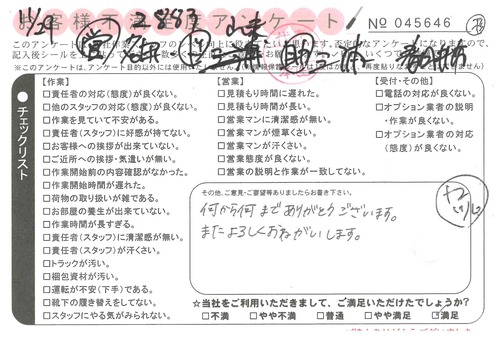 11/29
お客様不満足度アンケート
No 045646
このアンケートは
【作業】
□責任者の対応(態度)が良くない。
□他のスタッフの対応(態度)が良くない。
□作業を見ていて不安がある。
□責任者(スタッフ)に好感が持てない。
□お客様への挨拶が出来ていない。
□ご近所への挨拶・気遣いが無い。
□作業開始前の内容確認がなかった。
□作業開始時間が遅れた。
□荷物の取り扱いが雑である。
□お部屋の養生が出来ていない。
□作業時間が長すぎる。
□責任者(スタッフ)に清潔感が無い。
□責任者(スタッフ)が汗くさい。
□トラックが汚い。
□梱包資材が汚い。
□運転が不安(下手)である。
□靴下の履き替えをしてない。
□スタッフにやる気がみられない。
【営業】
□見積もり時間に遅れた。
□見積もり時間が長い。
□営業マンに清潔感が無い。
□営業マンが煙草くさい。
□営業マンが汗くさい。
□営業態度が良くない。
□営業の説明と作業が一致してない。
【受付・その他】
□電話の対応が良くない。
□オプション業者の説明
・作業が良くない。
□オプション業者の対応
(態度)が良くない。
チェックリスト
その他、ご意見・ご要望等ありましたらお書き下さい。
何から何まで ありがとう ございます。
また よろしく おねがいします。
☆当社をご利用いただきまして、ご満足いただけたでしょうか?
□不満 □やや不満 □普通 □やや満足 □満足